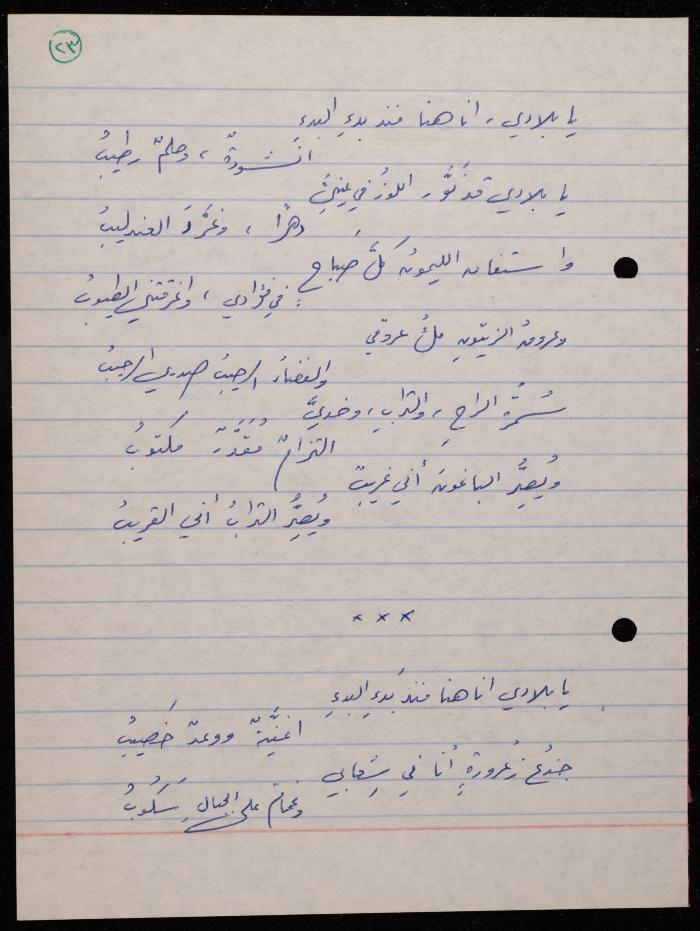 ٢٣
يا بلادي ، انا هنا منذ بدءِ البدءِ
انشودةٌ ، وحلمٌ رطيبُ
يا بلادي قد نَوَّر اللوزُ في عينيَّ
دهرًا ، وغرَّدَ العندليبُ
واستفاق الليمونُ كلَّ صَباحٍ
في فؤادي ، واغرقتني الطيوبُ
وعروقُ الزيتونِ ملءُ عروقي
والفضاءُ الرحيبُ صدري الرحيبُ
سُمْرةُ الراحِ ، والترابِ ، وخديَّ
التزامٌ مُقَدَّرٌ مكتوبُ
ويُصِرُّ الباغونَ أني غريبٌ
ويُصِرُّ الترابُ أني القريبُ
* * *
يا بلادي انا هنا منذ بَدءِ البدءِ
اغنيَّةٌ ووعدٌ خَصيبُ
جذعُ زُعرورةٍ أنا في شِعابي
وغمامٌ على الجبالِ سَكُوبُ